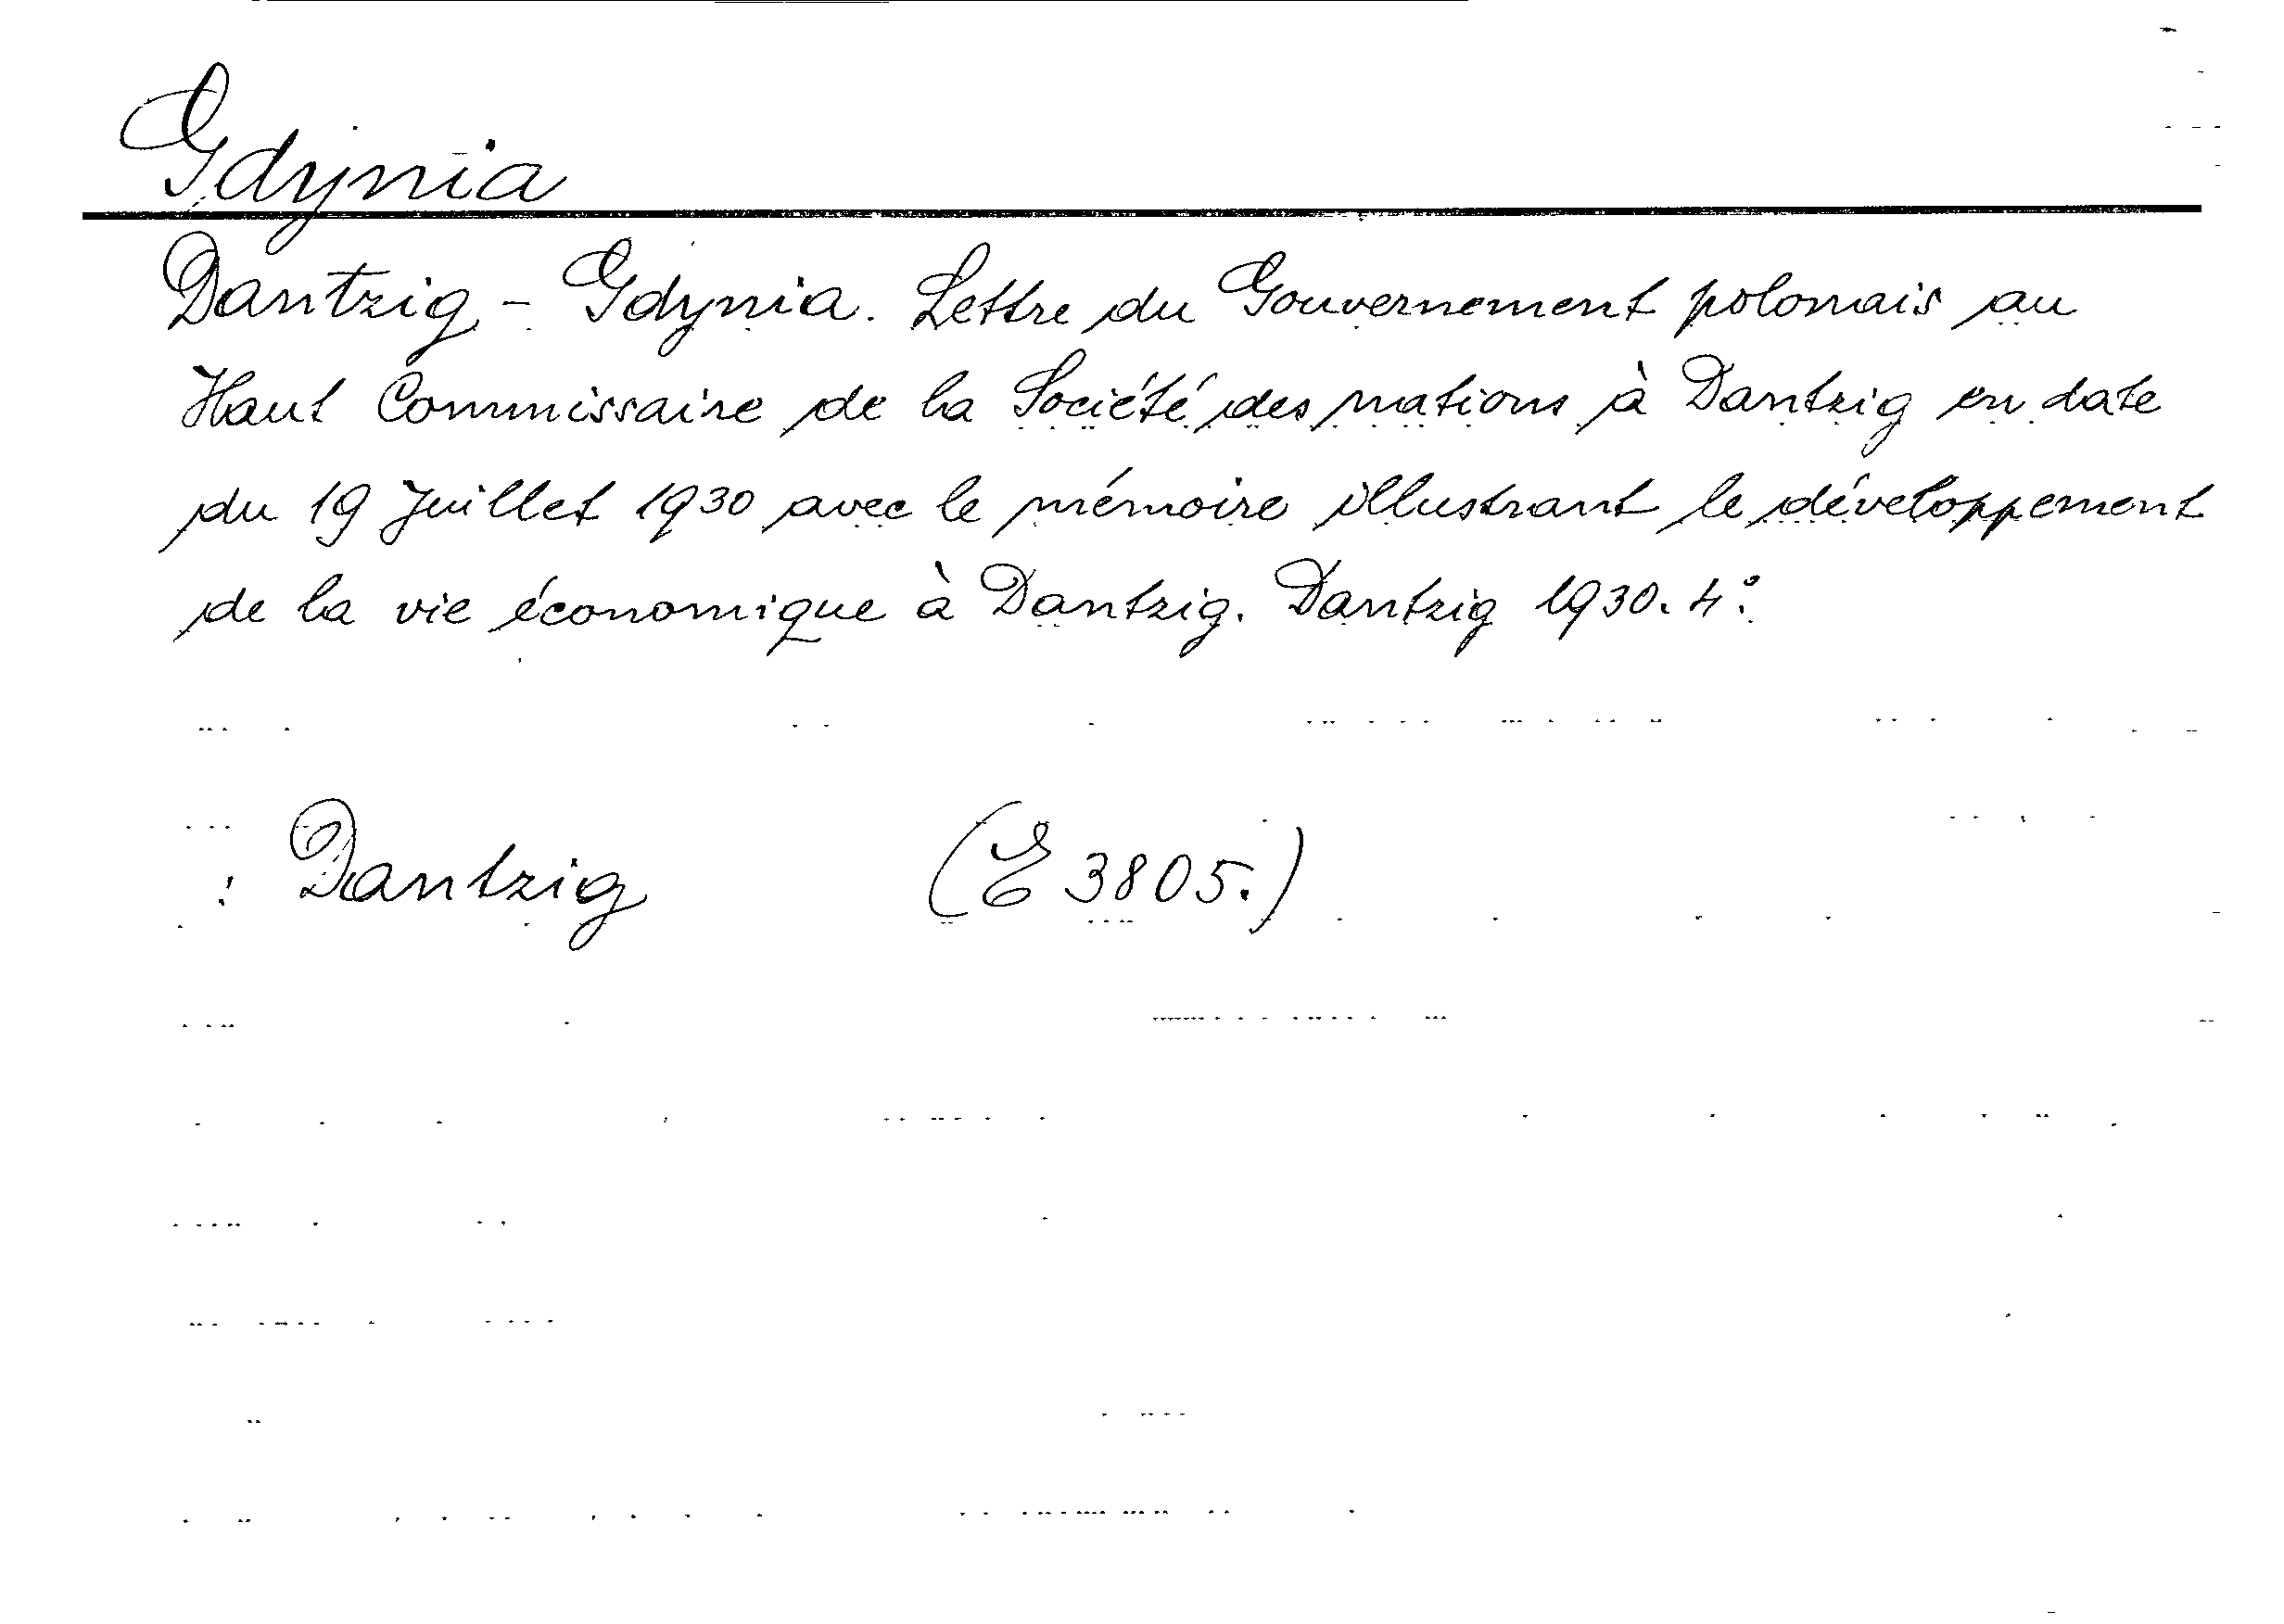 Gdynia
Dantzig - Gdynia. Lettre du Gouvernement polonais au
Haut Commissaire de la Société des nations à Dantzig en date
du 19 Juillet 1930 avec le mémoire illustrant le développement
de la vie économique à Dantzig. Dantzig 1930. 4°.
: Dantzig (E 3805.)